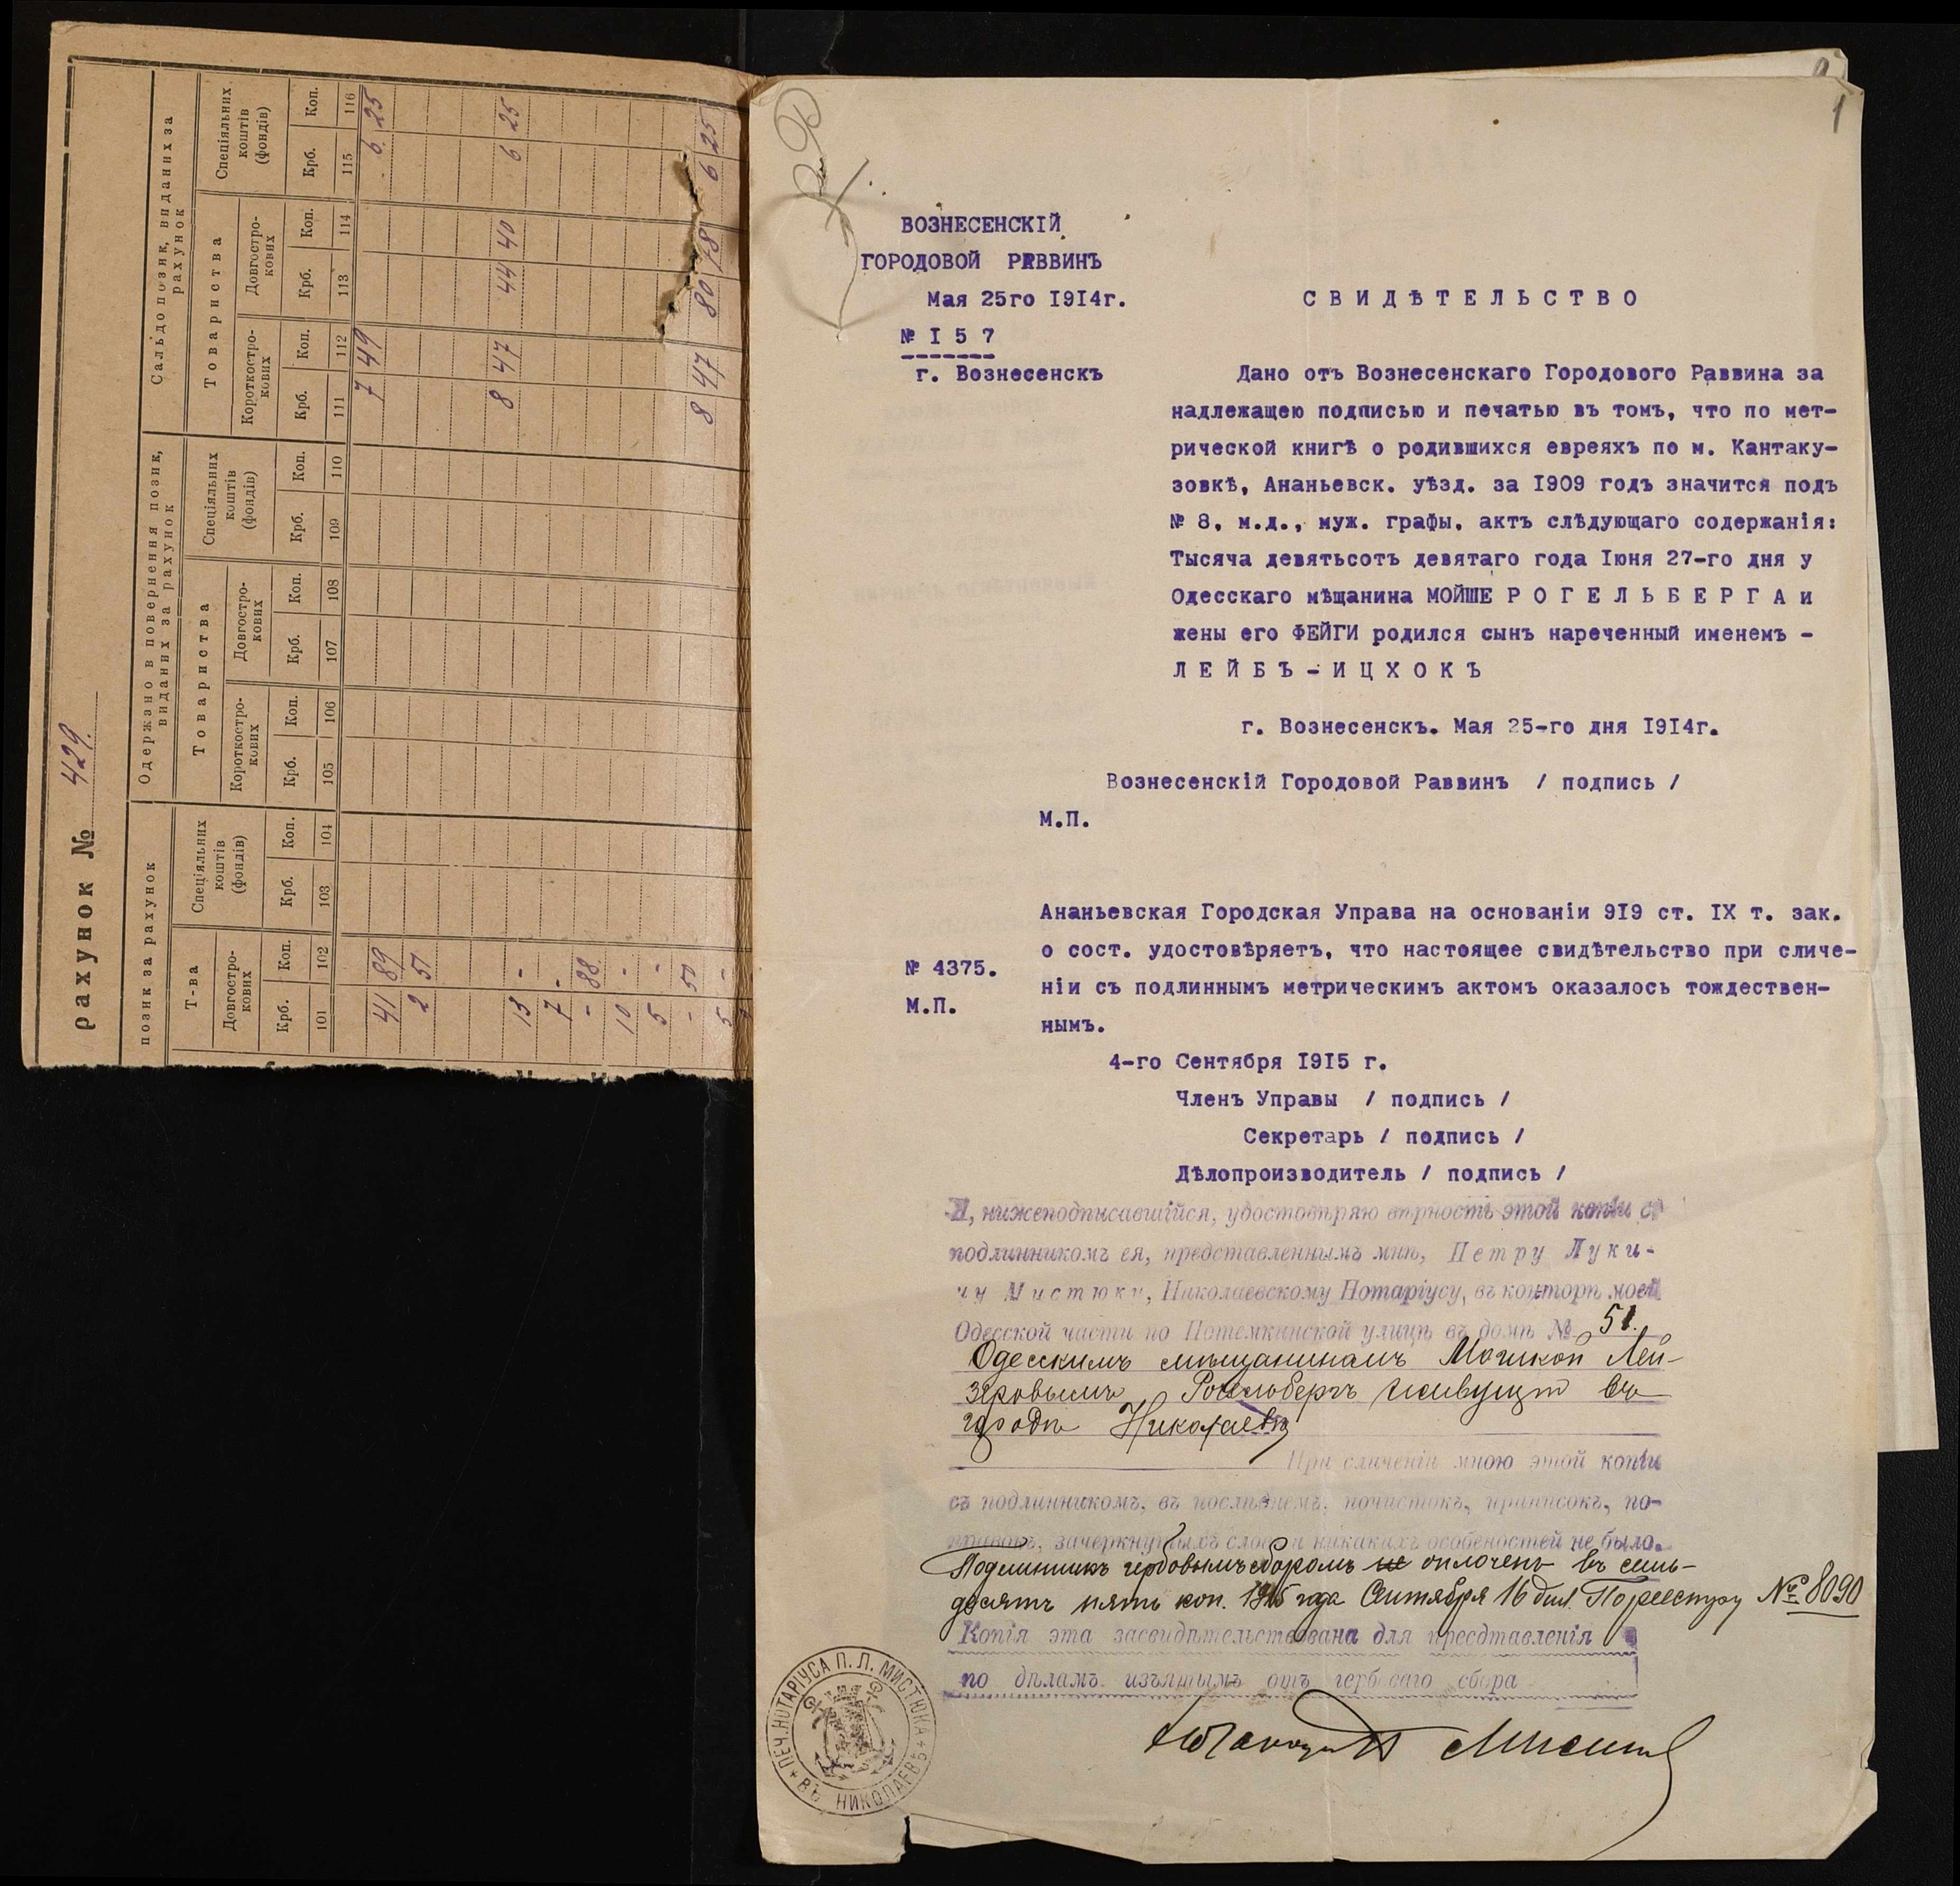 рахунок № 429.
позик за рахунок
Одержано в повернення позик, виданих за рахунок
Сальдо позик, виданих за рахунок
Т-ва
Спеціяльних коштів (фондів)
Товариства
Спеціяльних коштів (фондів)
Товариства
Спеціяльних коштів (фондів)
Довгостро-кових
Короткостро-кових
Довгостро-кових
Короткостро-кових
Довгостро-кових
Крб. Коп. Крб. Коп. Крб. Коп. Крб. Коп. Крб. Коп. Крб. Коп. Крб. Коп. Крб. Коп.
101 102 103 104 105 106 107 108 109 110 111 112 113 114 115 116
41 89 7 49 6 25
2 51
13 - 8 47 44 40 6 25
7 -
- 88
10 -
5 -
- 50
5 - 8 47 80 78 6 25
1
ВОЗНЕСЕНСКІЙ
ГОРОДОВОЙ РАВВИНЪ
Мая 25го 1914г.
№ I 5 7
г. Вознесенскъ
С В И Д Ѣ Т Е Л Ь С Т В О
Дано отъ Вознесенскаго Городового Раввина за
надлежащею подписью и печатью въ томъ, что по мет-
рической книгѣ о родившихся евреяхъ по м. Кантаку-
зовкѣ, Ананьевск. уѣзд. за 1909 годъ значится подъ
№ 8, м.д., муж. графы, актъ слѣдующаго содержанія:
Тысяча девятьсотъ девятаго года Іюня 27-го дня у
Одесскаго мѣщанина МОЙШЕ Р О Г Е Л Ь Б Е Р Г А и
жены его ФЕЙГИ родился сынъ нареченный именемъ -
Л Е Й Б Ъ - И Ц Х О К Ъ
г. Вознесенскъ. Мая 25-го дня 1914г.
Вознесенскій Городовой Раввинъ / подпись /
М.П.
Ананьевская Городская Управа на основаніи 919 ст. IX т. зак.
о сост. удостовѣряетъ, что настоящее свидѣтельство при сличе-
№ 4375.
ніи съ подлиннымъ метрическимъ актомъ оказалось тождествен-
М.П.
нымъ.
4-го Сентября 1915 г.
Членъ Управы / подпись /
Секретарь / подпись /
Дѣлопроизводитель / подпись /
Я, нижеподписавшійся, удостовѣряю вѣрность этой копіи съ
подлинникомъ ея, представленнымъ мнѣ, Петру Луки-
чу Мистюку, Николаевскому Нотаріусу, въ конторѣ моей
Одесской части по Потемкинской улицѣ въ домѣ № 51.
Одесскимъ мѣщаниномъ Мошкой Лей-
зеровымъ Рогельбергъ живущимъ въ
городѣ Николаевѣ
При сличеніи мною этой копіи
съ подлинникомъ, въ послѣднемъ, почистокъ, приписокъ, по-
правокъ, зачеркнутыхъ словъ и никакихъ особеностей не было.
Подлинникъ гербовымъ сборомъ не оплоченъ въ семь-
десятъ пять коп. 1915 года Сентября 16 дня. По реестру № 8090
Копія эта засвидѣтельствована для пресдтавленія
по дѣламъ изъятымъ отъ гербоваго сбора
Нотаріусъ Мистюкъ
ПЕЧ. НОТАРІУСА П. Л. МИСТЮКА
ВЪ НИКОЛАЕВѢ